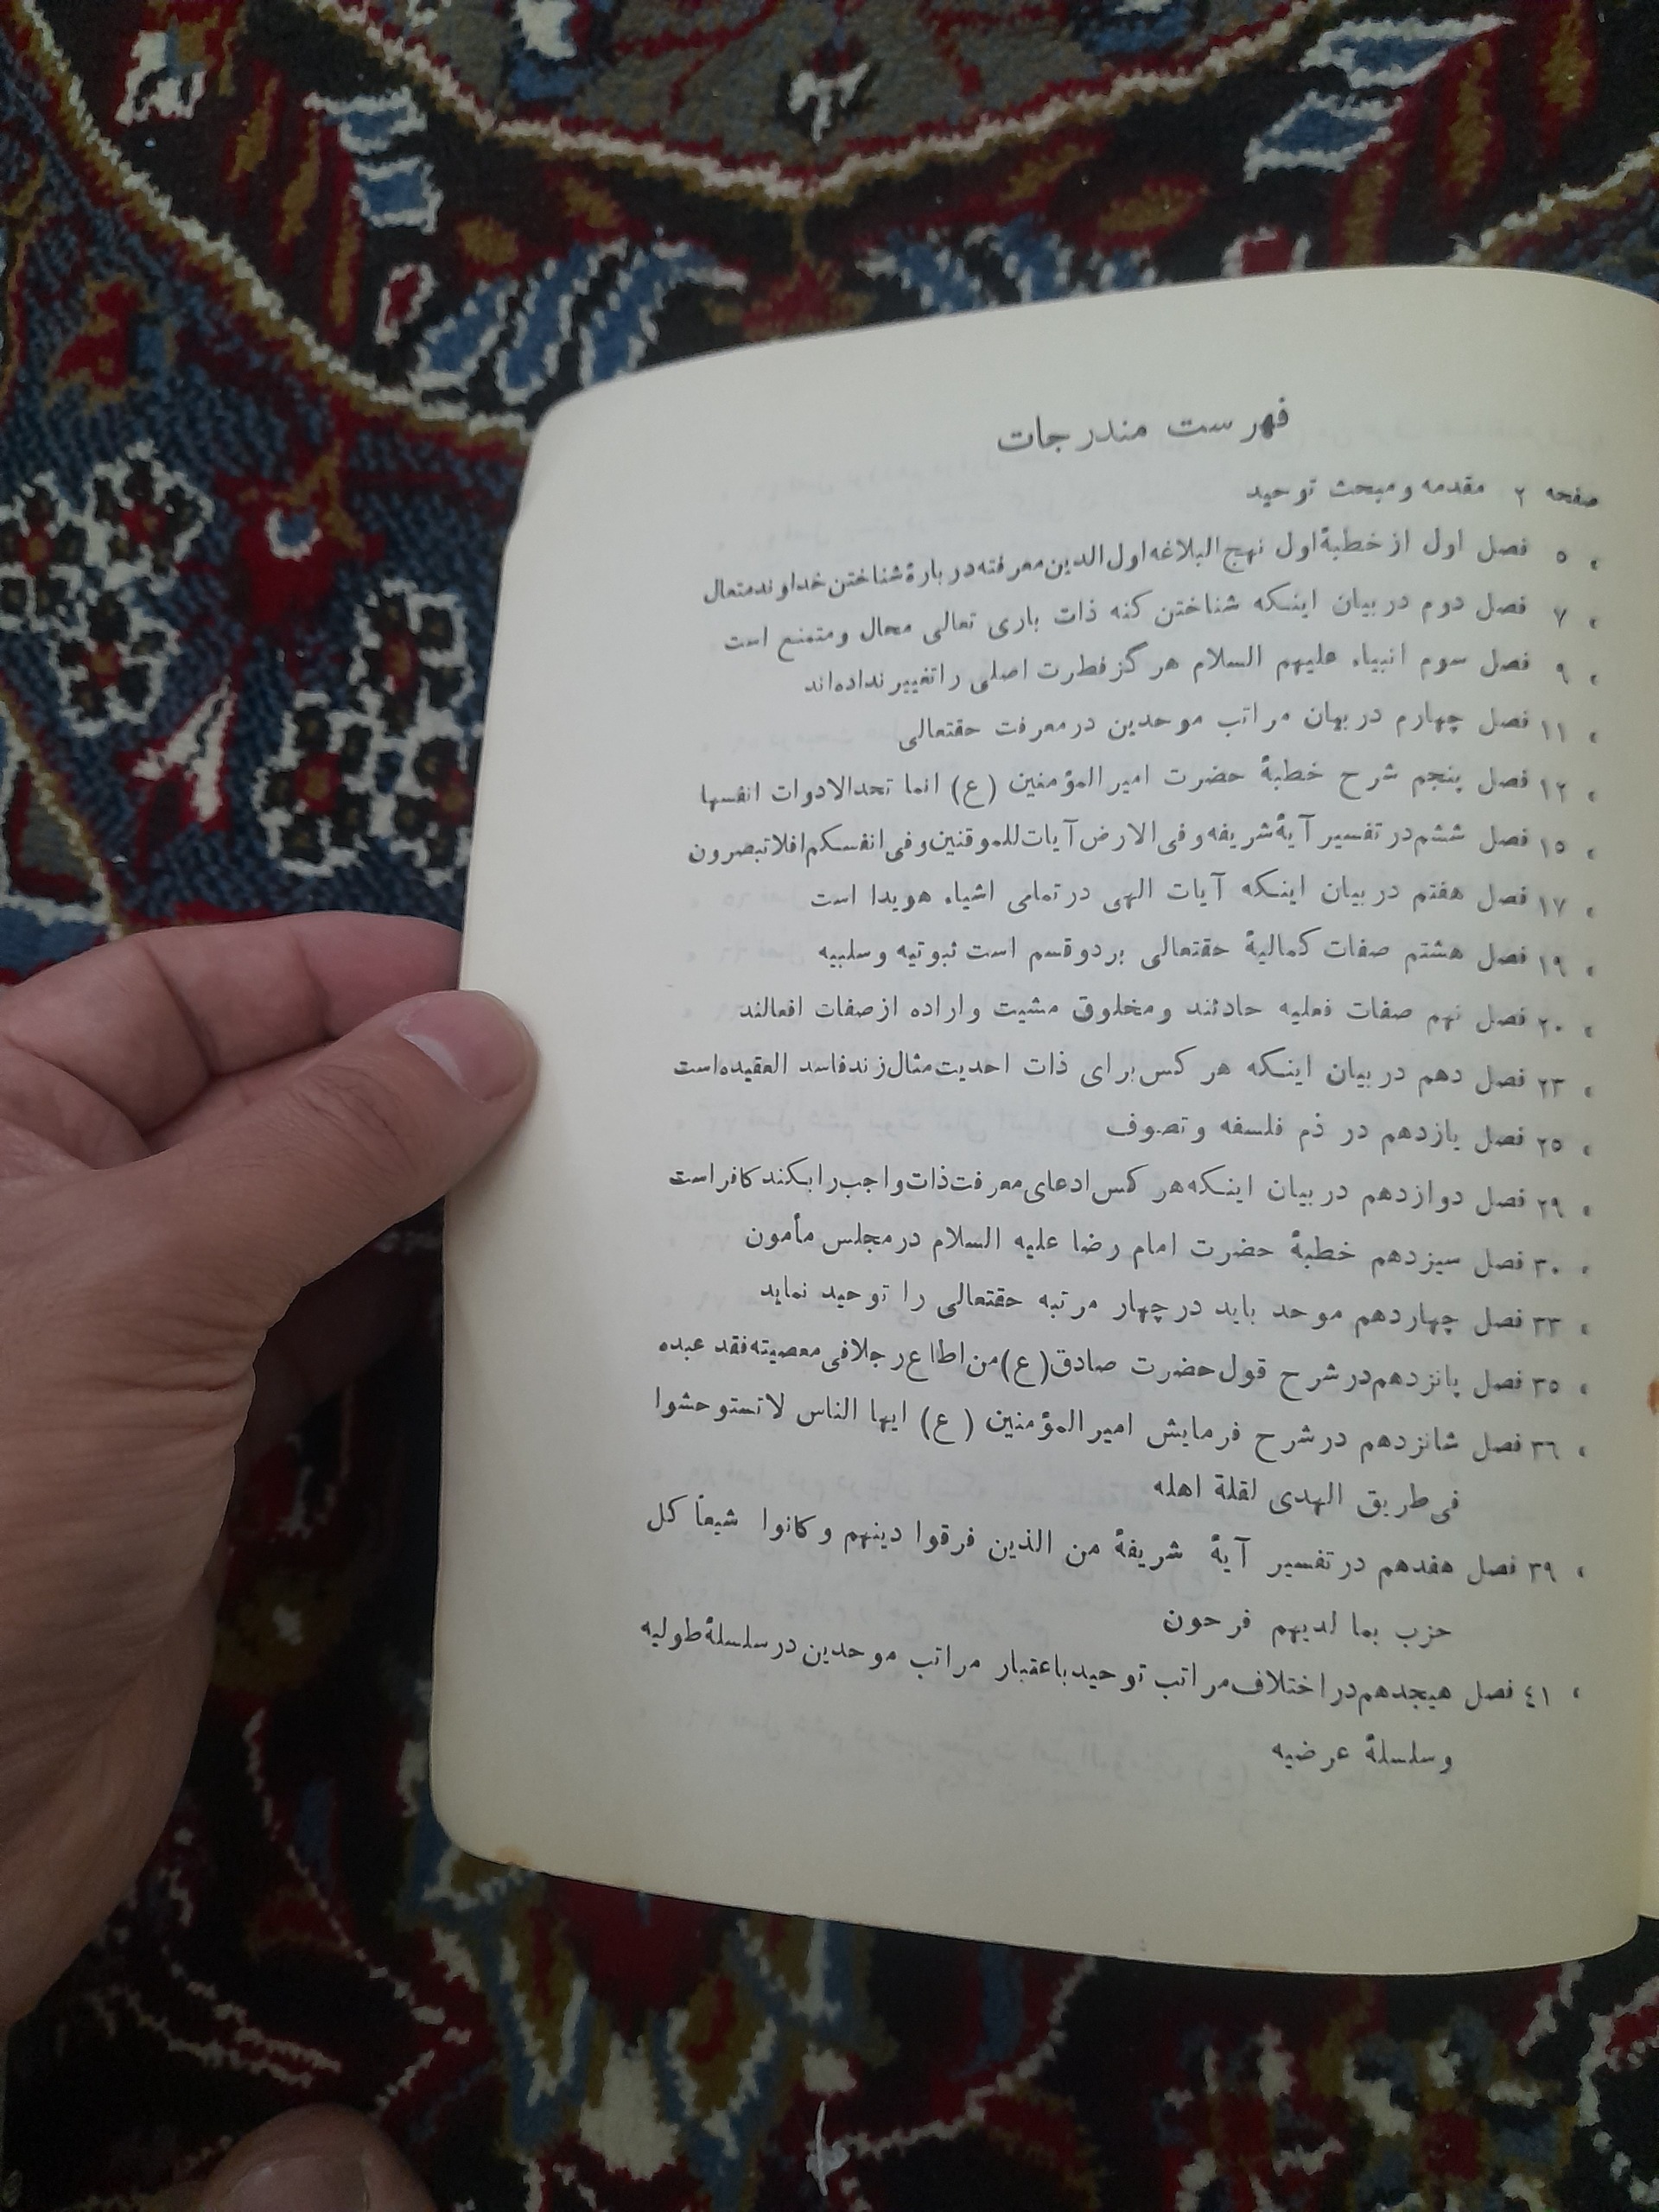 فهرست مندرجات
صفحه ۲ مقدمه و مبحث توحید
» ۵ فصل اول از خطبهٔ اول نهج البلاغه اول الدین معرفته در بارهٔ شناختن خداوند متعال
» ۷ فصل دوم در بیان اینکه شناختن کنه ذات باری تعالی محال و متمنع است
» ۹ فصل سوم انبیاء علیهم السلام هر گز فطرت اصلی را تغییر نداده‌اند
» ۱۱ فصل چهارم در بیان مراتب موحدین در معرفت حقتعالی
» ۱۲ فصل پنجم شرح خطبهٔ حضرت امیرالمؤمنین (ع) انما تحد الادوات انفسها
» ۱۵ فصل ششم در تفسیر آیهٔ شریفه و فی الارض آیات للموقنین و فی انفسکم افلا تبصرون
» ۱۷ فصل هفتم در بیان اینکه آیات الهی در تمامی اشیاء هویدا است
» ۱۹ فصل هشتم صفات کمالیهٔ حقتعالی بر دو قسم است ثبوتیه و سلبیه
» ۲۰ فصل نهم صفات فعلیه حادثند و مخلوق مشیت و اراده از صفات افعالند
» ۲۳ فصل دهم در بیان اینکه هر کس برای ذات احدیت مثال زند فاسد العقیده است
» ۲۵ فصل یازدهم در ذم فلسفه و تصوف
» ۲۹ فصل دوازدهم در بیان اینکه هر کس ادعای معرفت ذات واجب را بکند کافر است
» ۳۰ فصل سیزدهم خطبهٔ حضرت امام رضا علیه السلام در مجلس مأمون
» ۳۳ فصل چهاردهم موحد باید در چهار مرتبه حقتعالی را توحید نماید
» ۳۵ فصل پانزدهم در شرح قول حضرت صادق (ع) من اطاع رجلا فی معصیته فقد عبده
» ۳۶ فصل شانزدهم در شرح فرمایش امیرالمؤمنین (ع) ایها الناس لا تستوحشوا
فی طریق الهدی لقلة اهله
» ۳۹ فصل هفدهم در تفسیر آیهٔ شریفهٔ من الذین فرقوا دینهم و کانوا شیعاً کل
حزب بما لدیهم فرحون
» ٤۱ فصل هیجدهم در اختلاف مراتب توحید باعتبار مراتب موحدین در سلسلهٔ طولیه
و سلسلهٔ عرضیه